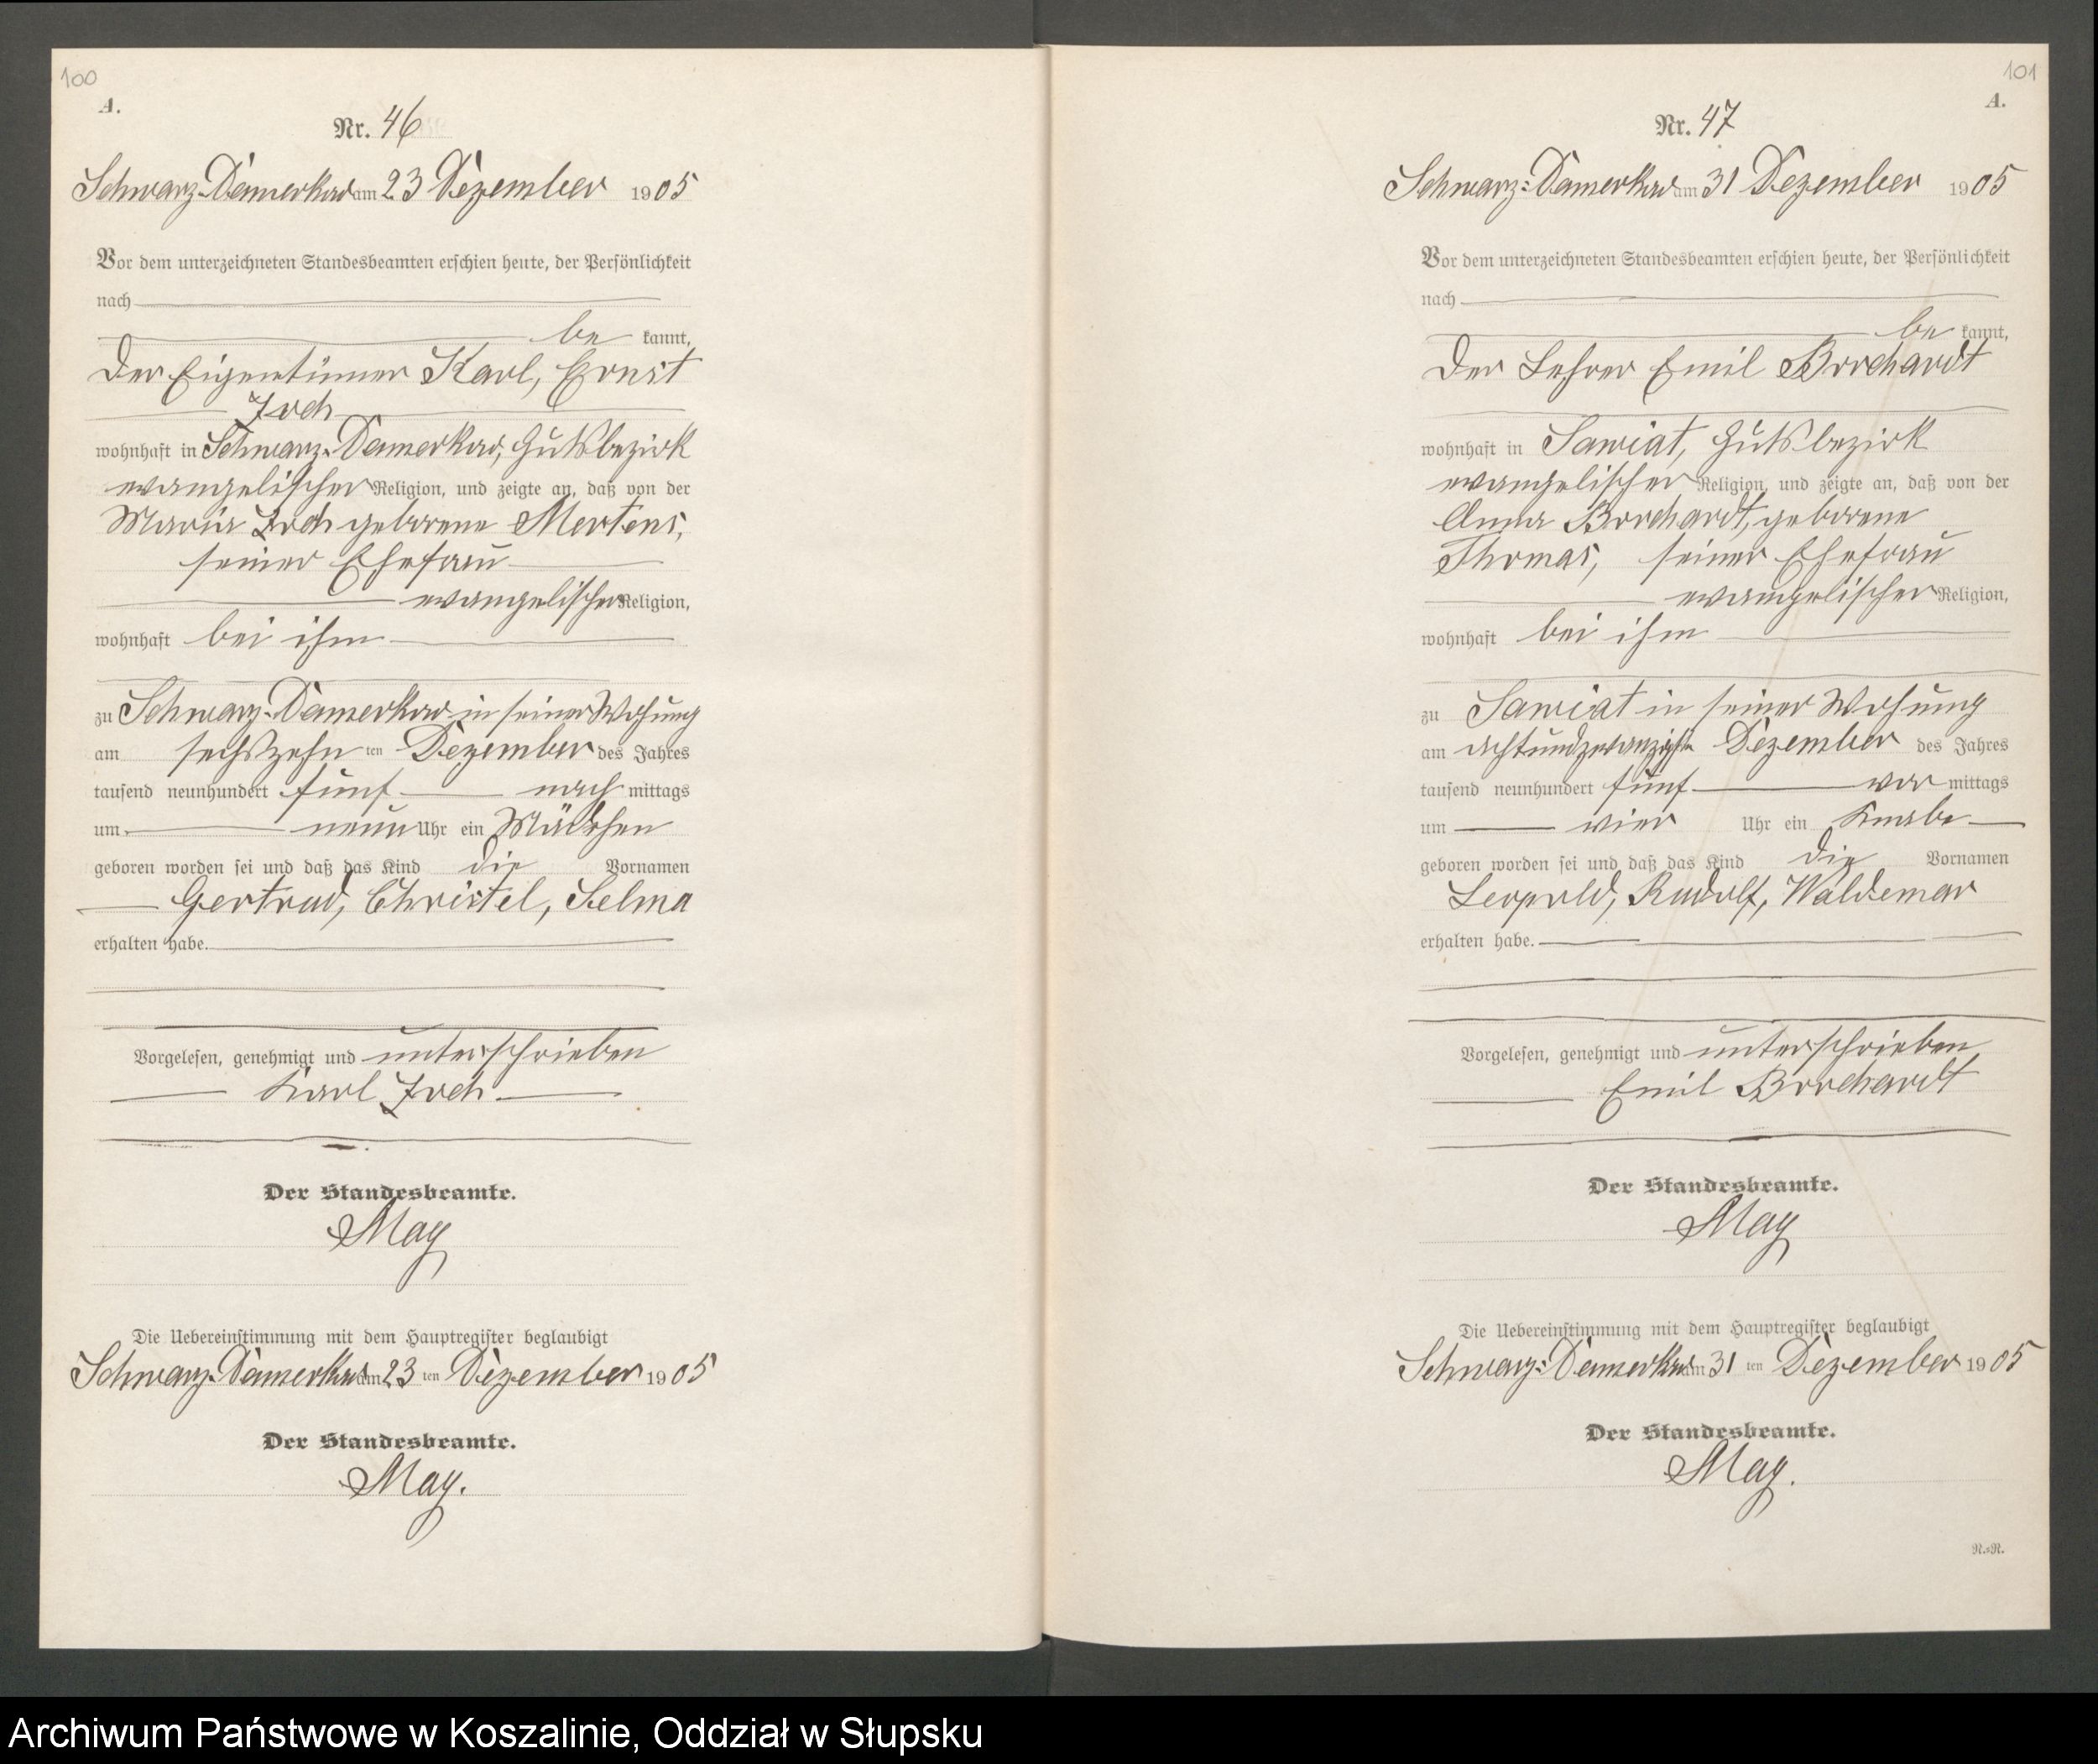 100
A.
Nr. 46
Schwarz-Damerkow am 23 Dezember 1905
Vor dem unterzeichneten Standesbeamten erschien heute, der Persönlichkeit
nach
be kannt,
Der Eigentümer Karl, Ernst
Joch
wohnhaft in Schwarz-Damerkow, Gutsbezirk
evangelischer Religion, und zeigte an, daß von der
Maria Joch geborene Mertens,
seiner Ehefrau
evangelischer Religion,
wohnhaft bei ihm
zu Schwarz-Damerkow in seiner Wohung
am sechszehn ten Dezember des Jahres
tausend neunhundert fünf nach mittags
um neun Uhr ein Mädchen
geboren worden sei und daß das Kind die Vornamen
Gertrud, Christel, Selma
erhalten habe.
Vorgelesen, genehmigt und unterschrieben
Karl Joch
Der Standesbeamte.
May
Die Uebereinstimmung mit dem Hauptregister beglaubigt
Schwarz-Damerkow am 23 ten Dezember 1905
Der Standesbeamte.
May.
101
A.
Nr. 47
Schwarz-Damerkow am 31 Dezember 1905
Vor dem unterzeichneten Standesbeamten erschien heute, der Persönlichkeit
nach
be kannt,
Der Lehrer Emil Borchardt
wohnhaft in Sawiat, Gutsbezirk
evangelischer Religion, und zeigte an, daß von der
Anna Borchardt, geborene
Thomas, seiner Ehefrau
evangelischer Religion,
wohnhaft bei ihm
zu Sawiat in seiner Wohung
am achtundzwanzigsten Dezember des Jahres
tausend neunhundert fünf vor mittags
um vier Uhr ein Knabe
geboren worden sei und daß das Kind die Vornamen
Leopold, Rudolf, Waldemar
erhalten habe.
Vorgelesen, genehmigt und unterschrieben
Emil Borchardt
Der Standesbeamte.
May
Die Uebereinstimmung mit dem Hauptregister beglaubigt
Schwarz-Damerkow am 31 ten Dezember 1905
Der Standesbeamte.
May.
R.=R.
Archiwum Państwowe w Koszalinie, Oddział w Słupsku